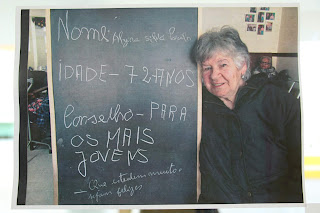 Nome:
IDADE - 72 ANOS
Conselho - PARA
OS MAIS
JOVENS
- Que estudem muito
sejam felizes